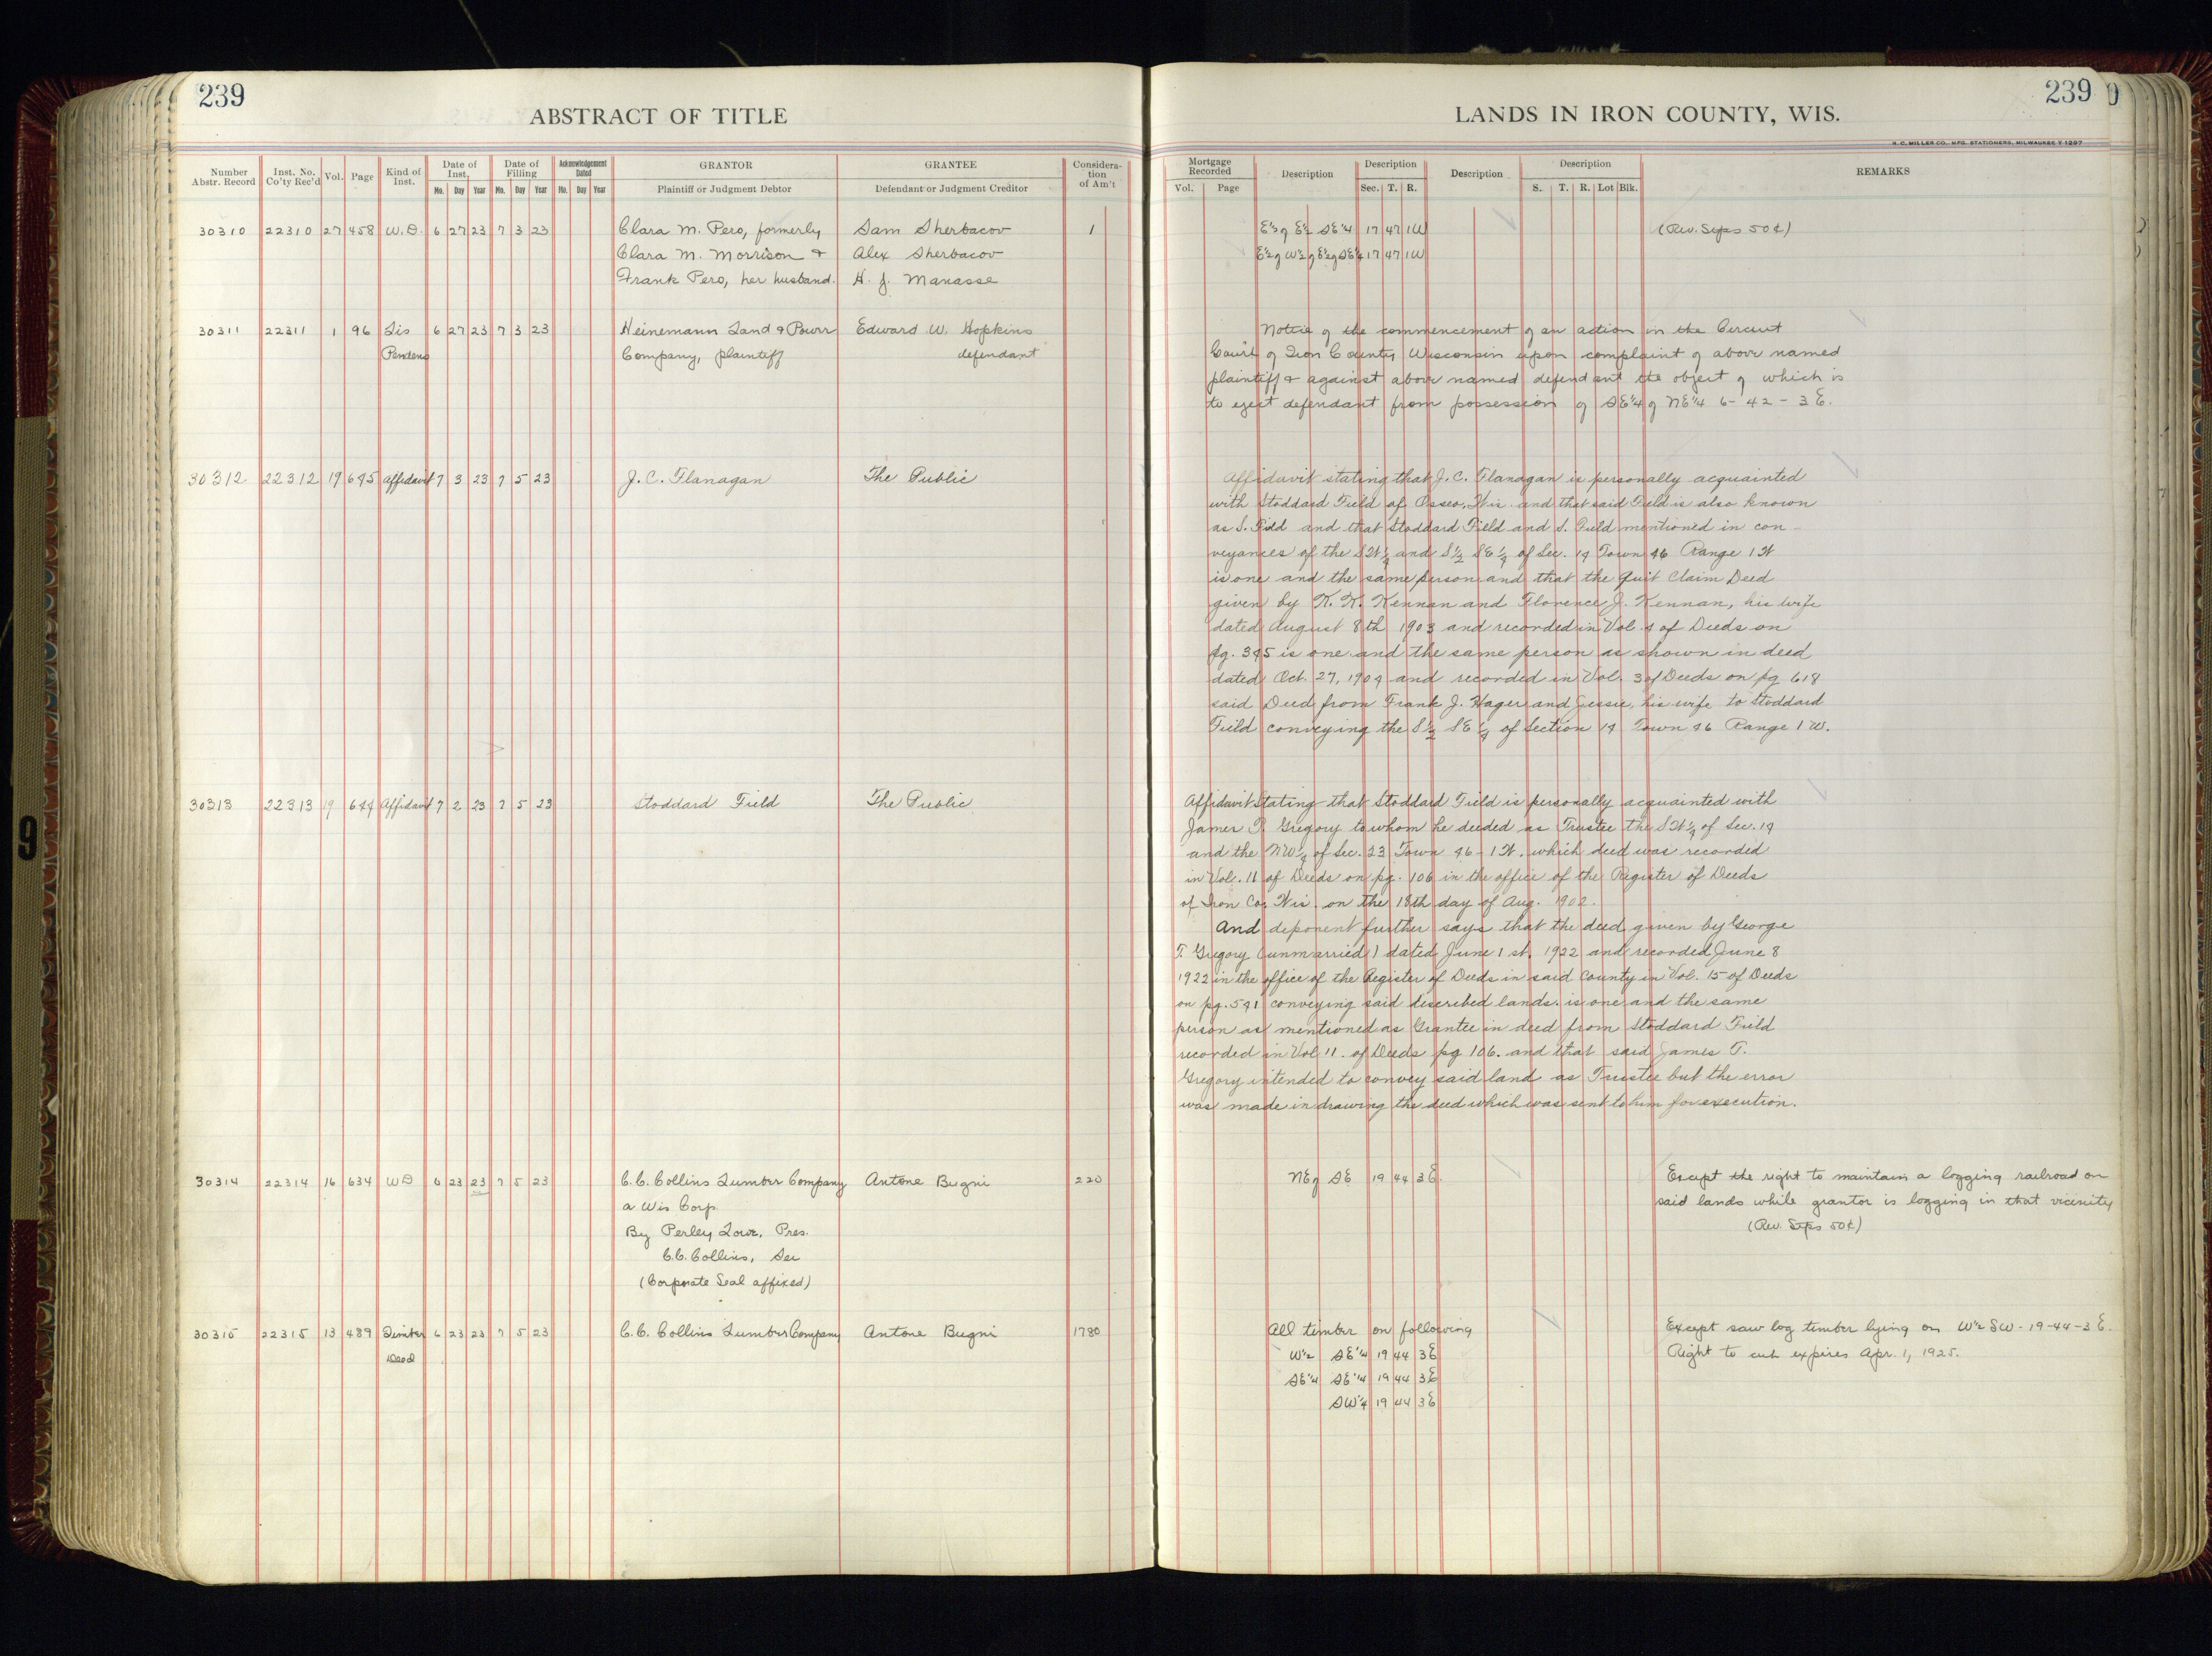 239
ABSTRACT OF TITLE
Number Abstr. Record
Inst. No. Co'ty Rec'd
Vol.
Page
Kind of Inst.
Date of Inst.
Mo. Day Year
Date of Filling
Mo. Day Year
Acknowledgement Dated
Mo. Day Year
GRANTOR
Plaintiff or Judgment Debtor
GRANTEE
Defendant or Judgment Creditor
Consideration of Am't
30310 22310 27 458 W.D. 6 27 23 7 3 23 Clara M. Pero, formerly Sam Sherbacov 1
Clara M. Morrison & Alex Sherbacov
Frank Pero, her husband. H. J. Manasse
30311 22311 1 96 Lis 6 27 23 7 3 23 Heinemann Land & Power Edward W. Hopkins
Pendens Company, plaintiff defendant
30312 22312 19 645 Affidavit 7 3 23 7 5 23 J. C. Flanagan The Public
30313 22313 19 644 Affidavit 7 2 23 7 5 23 Stoddard Field The Public
30314 22314 16 634 WD 6 23 23 7 5 23 C.C. Collins Lumber Company Antone Bugni 220
a Wis Corp.
By Perley Lowe, Pres.
C.C. Collins, Sec
(Corporate Seal affixed)
30315 22315 13 489 Timber 6 23 23 7 5 23 C.C. Collins Lumber Company Antone Bugni 1780
Deed
9
239
LANDS IN IRON COUNTY, WIS.
H. C. MILLER CO., MFG. STATIONERS, MILWAUKEE Y 1297
Mortgage Recorded
Vol. Page
Description
Description
Sec. T. R.
Description
Description
S. T. R. Lot Blk.
REMARKS
E½ of E½ SE¼ 17 47 1W (Rev. Stps 50¢)
E½ of W½ of E½ of SE¼ 17 47 1W
Notice of the commencement of an action in the Circuit
Court of Iron County Wisconsin upon complaint of above named
plaintiff & against above named defendant the object of which is
to eject defendant from possession of SE¼ of NE¼ 6 - 42 - 3 E.
Affidavit stating that J. C. Flanagan is personally acquainted
with Stoddard Field of Osseo, Wis. and that said Field is also known
as S. Field and that Stoddard Field and S. Field mentioned in con-
veyances of the SW¼ and S½ SE¼ of Sec. 14 Town 46 Range 1 W
is one and the same person and that the Quit Claim Deed
given by K. K. Kennan and Florence J. Kennan, his wife
dated August 8th 1903 and recorded in Vol. 4 of Deeds on
pg. 345 is one and the same person as shown in deed
dated Oct. 27, 1904 and recorded in Vol. 3 of Deeds on pg 618
said Deed from Frank J. Hager and Jessie, his wife to Stoddard
Field conveying the S½ SE¼ of Section 14 Town 46 Range 1 W.
Affidavit Stating that Stoddard Field is personally acquainted with
James T. Gregory to whom he deeded as Trustee the SW¼ of Sec. 14
and the NW¼ of Sec. 23 Town 46 - 1 W. which deed was recorded
in Vol. 11 of Deeds on pg. 106 in the office of the Register of Deeds
of Iron Co, Wis. on the 18th day of Aug. 1902.
And deponent further says that the deed given by George
T. Gregory (unmarried) dated June 1 st. 1922 and recorded June 8
1922 in the office of the Register of Deeds in said County in Vol. 15 of Deeds
on pg. 541 conveying said described lands. is one and the same
person as mentioned as Grantee in deed from Stoddard Field
recorded in Vol 11. of Deeds pg 106. and that said James T.
Gregory intended to convey said land as Trustee but the error
was made in drawing the deed which was sent to him for execution.
NE of SE 19 44 3 E. Except the right to maintain a logging railroad on
said lands while grantor is logging in that vicinity
(Rev. Stps 50¢)
All timber on following Except saw log timber lying on W½ SW - 19-44-3 E.
W½ SE¼ 19 44 3E Right to cut expires Apr. 1, 1925.
SE¼ SE¼ 19 44 3E
SW¼ 19 44 3E